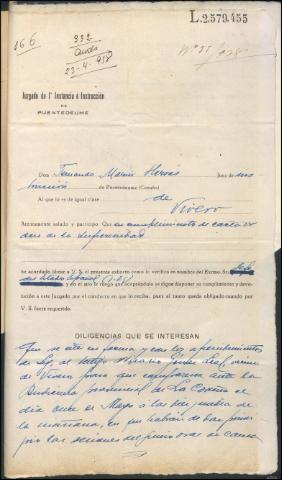 L.2579.455
166
332
23-4-938
Juzgado de 1ª Instancia é Instrucción
DE
PUENTEDEUME
Don Fernando Marín Hervás Juez de ins
trucción de Puentedeume (Coruña)
Al que lo es de igual clase de
Vivero
Atentamente saludo y participo: Que en cumplimiento de carta or
den de la Superioridad
se acordado librar a V. S. el presente exhorto como lo verifico en nombre del Excmo. Sr. Jefe
del Estado Español
y en el mío le ruego que aceptándolo se digne disponer su cumplimiento y devo-
lución a este Juzgado por el conducto en que lo reciba, pues al tanto queda obligado cuando por
V. S. fuere requerido.
DILIGENCIAS QUE SE INTERESAN
Que se cite en forma y con los apercibimientos
de Ley, al testigo
de Vivero para que comparezca ante la
Audiencia provincial de La Coruña el
día once de Mayo a las diez y media de
la mañana, en que habrán de dar princi
pio las sesiones del juicio oral en causa